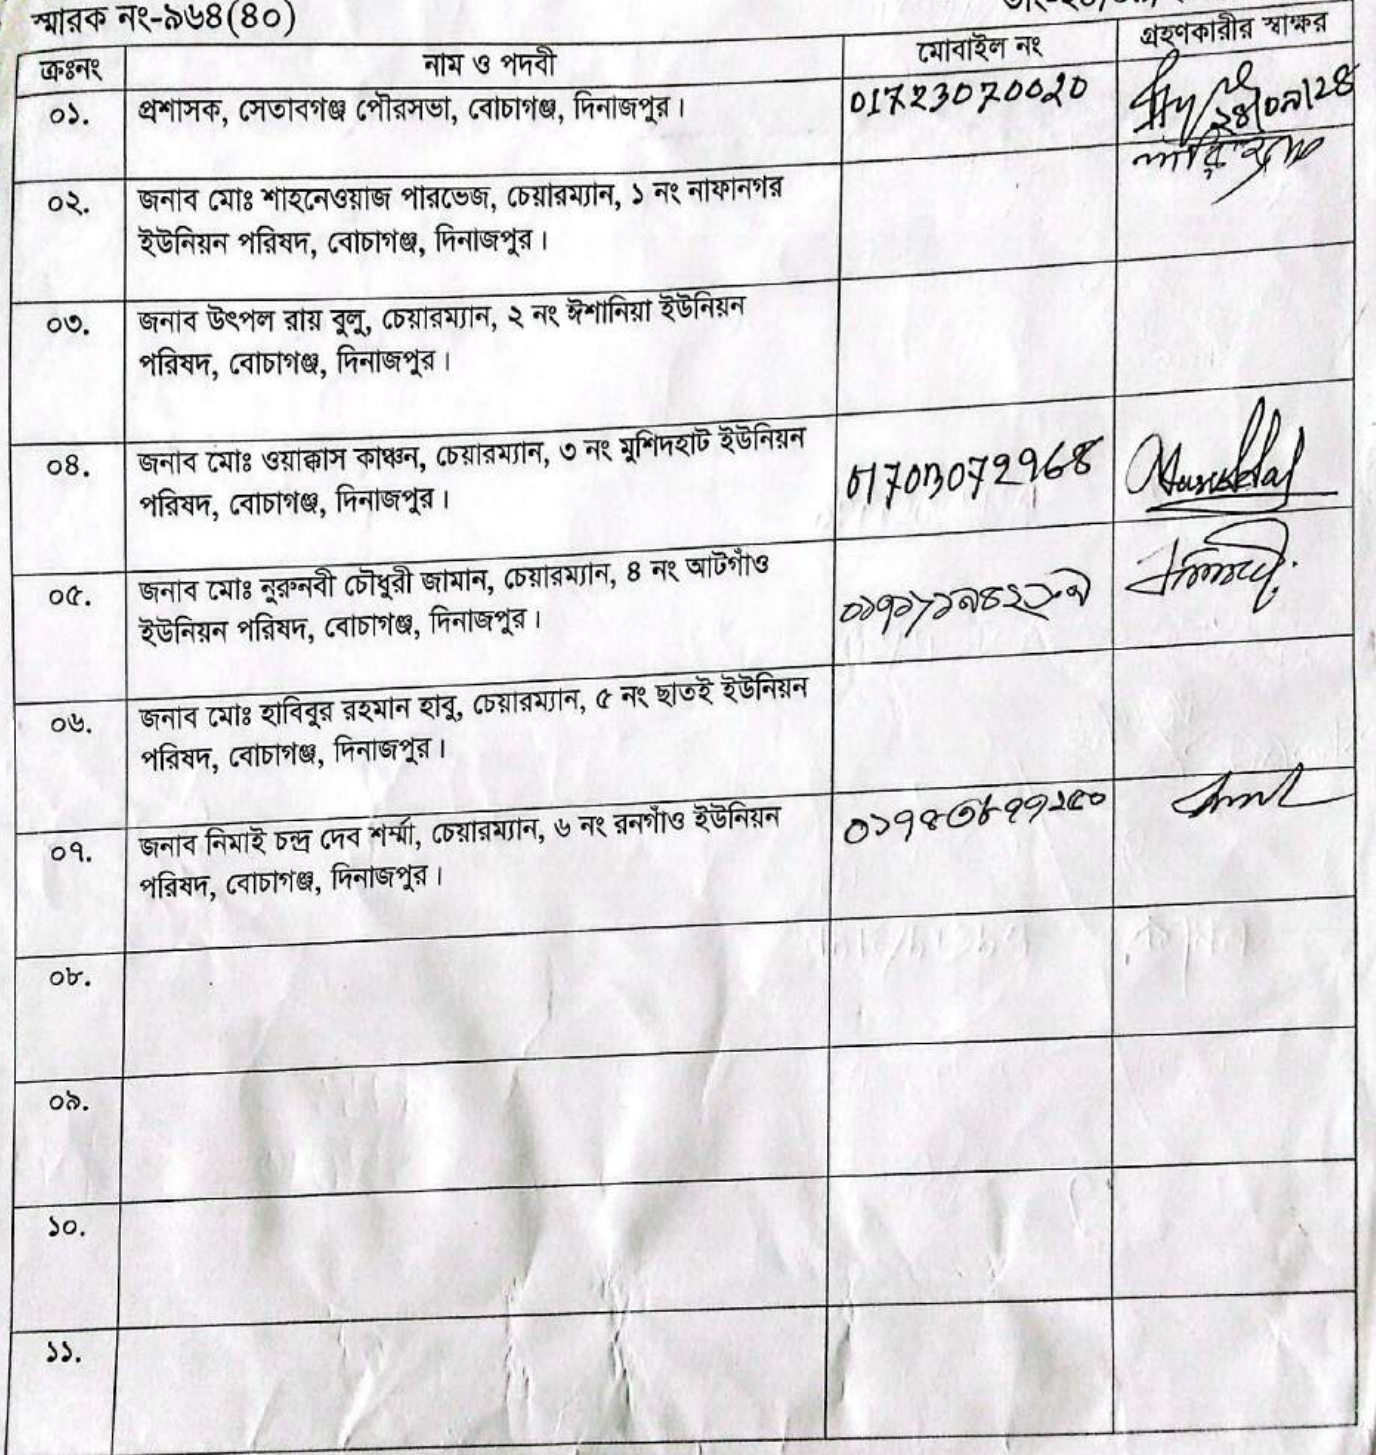 স্মারক নং-৯৬৪(৪০)
ক্রঃনং নাম ও পদবী মোবাইল নং গ্রহণকারীর স্বাক্ষর
০১. প্রশাসক, সেতাবগঞ্জ পৌরসভা, বোচাগঞ্জ, দিনাজপুর। 01723070020
০২. জনাব মোঃ শাহনেওয়াজ পারভেজ, চেয়ারম্যান, ১ নং নাফানগর
ইউনিয়ন পরিষদ, বোচাগঞ্জ, দিনাজপুর।
০৩. জনাব উৎপল রায় বুলু, চেয়ারম্যান, ২ নং ঈশানিয়া ইউনিয়ন
পরিষদ, বোচাগঞ্জ, দিনাজপুর।
০৪. জনাব মোঃ ওয়াক্কাস কাঞ্চন, চেয়ারম্যান, ৩ নং মুশিদহাট ইউনিয়ন
পরিষদ, বোচাগঞ্জ, দিনাজপুর।
০৫. জনাব মোঃ নুরুনবী চৌধুরী জামান, চেয়ারম্যান, ৪ নং আটগাঁও
ইউনিয়ন পরিষদ, বোচাগঞ্জ, দিনাজপুর।
০৬. জনাব মোঃ হাবিবুর রহমান হাবু, চেয়ারম্যান, ৫ নং ছাতই ইউনিয়ন
পরিষদ, বোচাগঞ্জ, দিনাজপুর।
০৭. জনাব নিমাই চন্দ্র দেব শর্ম্মা, চেয়ারম্যান, ৬ নং রনগাঁও ইউনিয়ন
পরিষদ, বোচাগঞ্জ, দিনাজপুর।
০৮.
০৯.
১০.
১১.